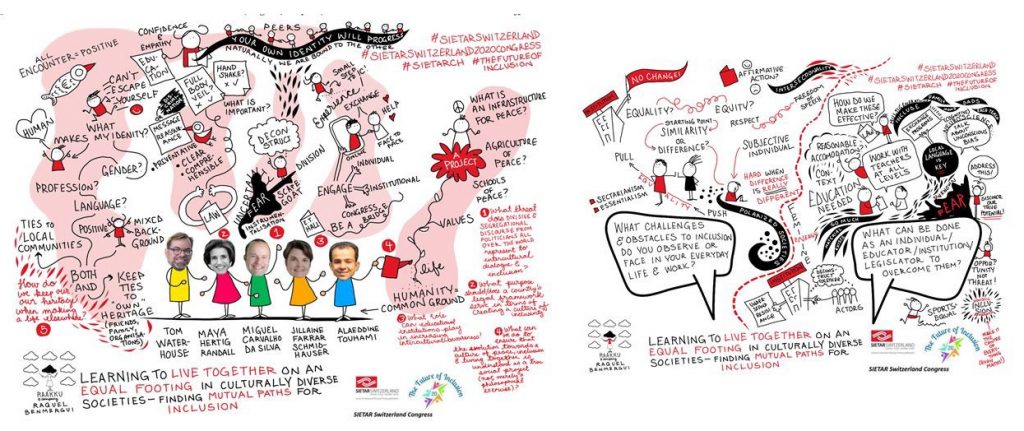 PEERS
YOUR OWN IDENTITY WILL PROGRESS
NATURALLY WE ARE BOUND TO THE OTHER
#SIETARSWITZERLAND
#SIETARSWITZERLAND2020CONGRESS
#SIETARCH #THEFUTUREOF
INCLUSION
ALL
ENCOUNTER=POSITIVE
CONFIDENCE
& EMPATHY
EDU-
CATION
FULL
BODY
VEIL?
HAND
SHAKE?
WHAT IS
IMPORTANT?
CAN'T
ESCAPE
YOURSELF
HUMAN
WHAT
MAKES MY IDENTITY?
GENDER?
PROFESSION?
LANGUAGE?
POSITIVE
MIXED
BACK-
GROUND
TIES TO
LOCAL
COMMUNITIES
BOTH
AND
KEEP
TIES TO
"OWN"
HERITAGE
(FRIENDS,
FAMILY,
ORGANISA-
TIONS)
How do
we keep our
own heritage
when making
a life elsewhere
5
MESSAGE
PREVENTATIVE
CLEAR
COMPRE-
HENSIBLE
DECON
STRUCT
LAW
FEAR
SCAPE
GOAT
INSTRUMEN-
TALISATION
DIVISION
SMALL
STEPS
Experience
EXCHANGE
HELP
FACE TO
FACE
ONLINE
INDIVIDUAL
ENGAGE
INSTITUTIONAL
CONGRESS
BE A
BRIDGE
WHAT IS
AN INFRASTRUCTURE
FOR PEACE?
A
PROJECT
AGRICULTURE
OF PEACE?
SCHOOLS
OF PEACE?
VALUES
life
HUMANITY=
COMMON GROUND
2
1
3
4
1 What threat
does DIVISIVE &
SEGREGATIONAL
DISCOURSE FROM
POLITICIANS ALL
OVER THE WORLD
represent for
intercultural
dialogue &
inclusion?
2 What purpose
should/does a country's
legal framework
serve in terms of
Creating a culture of
inclusivity
3 What role
can educational
institutions play
in increasing
intercultural awareness?
4 What can
we do to
ensure that
the evolution towards a
culture of peace, inclusion
& living together is
understood as a
social project
(not merely a
philosophical
exercise)?
TOM
WATER-
HOUSE
MAYA
HERTIG
RANDALL
MIGUEL
CARVALHO
DA SILVA
JILLAINE
FARRAR
SCHMID-
HAUSER
ALAEDDINE
TOUHAMI
RAAKKU
& company
RAQUEL
BENMERGUI
LEARNING TO LIVE TOGETHER ON AN
EQUAL FOOTING IN CULTURALLY DIVERSE
SOCIETIES-FINDING MUTUAL PATHS FOR
INCLUSION
SIETAR SWITZERLAND
The Future of Inclusion
SIETAR Switzerland Congress
NO CHANGE!
INSTITUTIONS
EQUALITY?
AFFIRMATIVE
ACTION?
EQUITY?
RESPECT
FREEDOM
OF
SPEECH
INTERSECTIONALITY
#SIETARSWITZERLAND
#SIETARSWITZERLAND2020CONGRESS
#SIETARCH #THEFUTUREOF
INCLUSION
STARTING POINT
SIMILARITY
OR
DIFFERENCE?
PULL
PUSH
SECTARIANISM
ESSENTIALISM
SUBJECTIVE
INDIVIDUAL
HARD WHEN
DIFFERENCE
IS REALLY
DIFFERENT
HOW DO WE
MAKE THESE
EFFECTIVE?
LAW
REASONABLE
ACCOMODATION?
CON-
TEXT
EDUCATION
NEEDED
WORK WITH
TEACHERS
AT ALL
LEVELS
TALK
ABOUT
UNCONSCIOUS
BIAS
LOCAL
LANGUAGE
IS
KEY
ADDRESS
THIS!
FEAR
DISCOVER
OUR TRUE
POTENTIAL!
WHAT CHALLENGES
& OBSTACLES TO INCLUSION
DO YOU OBSERVE OR
FACE IN YOUR EVERYDAY
LIFE & WORK?
WHAT CAN BE DONE
AS AN INDIVIDUAL/
EDUCATOR/INSTITUTION/
LEGISLATOR TO
OVERCOME THEM?
OPPOR-
TUNITY
NOT
THREAT!
DECONSTRUCT
TOGETHER
ACTORS
SPORTS=
EQUAL
INCLU-
SION
RAAKKU
& company
RAQUEL
BENMERGUI
LEARNING TO LIVE TOGETHER ON AN
EQUAL FOOTING IN CULTURALLY DIVERSE
SOCIETIES-FINDING MUTUAL PATHS FOR
INCLUSION
SIETAR SWITZERLAND
The Future of Inclusion
SIETAR Switzerland Congress